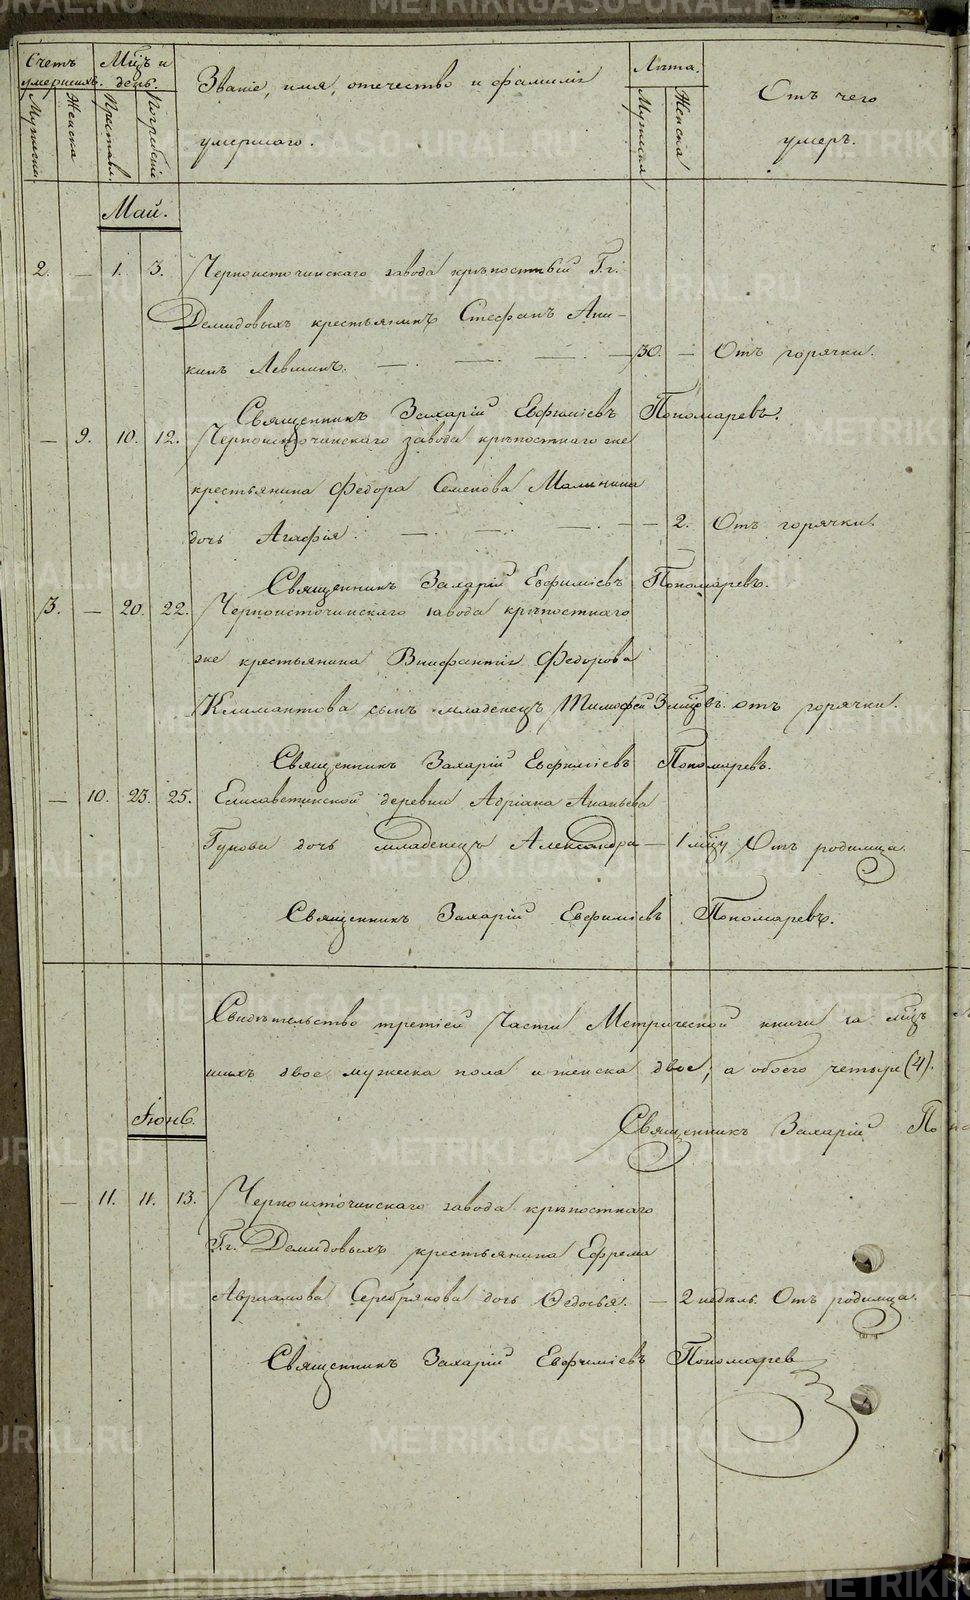 Счетъ умершихъ. Мцъ и день. Званіе, имя, отечество и фамиліи умершаго. Лѣта. Отъ чего умеръ.
Мужеска. Женска. Преставл. Погребеніе Мужеска Женска
Май.
2. — 1. 3. Черноисточинскаго завода крѣпостный Гг.
Демидовыхъ крестьянинъ Стефанъ Ани-
кинъ Левшинъ. — 30. — Отъ горячки.
Священникъ Захарій Евфиміевъ Пономаревъ.
— 9. 10. 12. Черноисточинскаго завода крѣпостнаго же
крестьянина Федора Семенова Малинина
дочь Агафія. — 2. Отъ горячки.
Священникъ Захарій Евфиміевъ Пономаревъ.
3. — 20. 22. Черноисточинскаго завода крѣпостнаго
же крестьянина Внифантія Федорова
Климантова сынъ младенецъ Тимофей 3 мцовъ. отъ горячки.
Священникъ Захарій Евфиміевъ Пономаревъ.
— 10. 23. 25. Елисаветинской деревни Адріана Ананьева
дочь младенецъ Александра — 1 мцу Отъ родимца.
Священникъ Захарій Евфиміевъ Пономаревъ.
Свидѣтельство третіей Части Метрической книги за мцъ
шихъ двое мужеска пола и женска двое, а обоего четыре (4).
Іюнь.
Священникъ Захарій По
— 11. 11. 13. Черноисточинскаго завода крѣпостнаго
Гг. Демидовыхъ крестьянина Ефрема
Авраамова Серебрякова дочь Ѳедосья. — 2 недѣль. Отъ родимца.
Священникъ Захарій Евфиміевъ Пономарев
METRIKI.GASO-URAL.RU